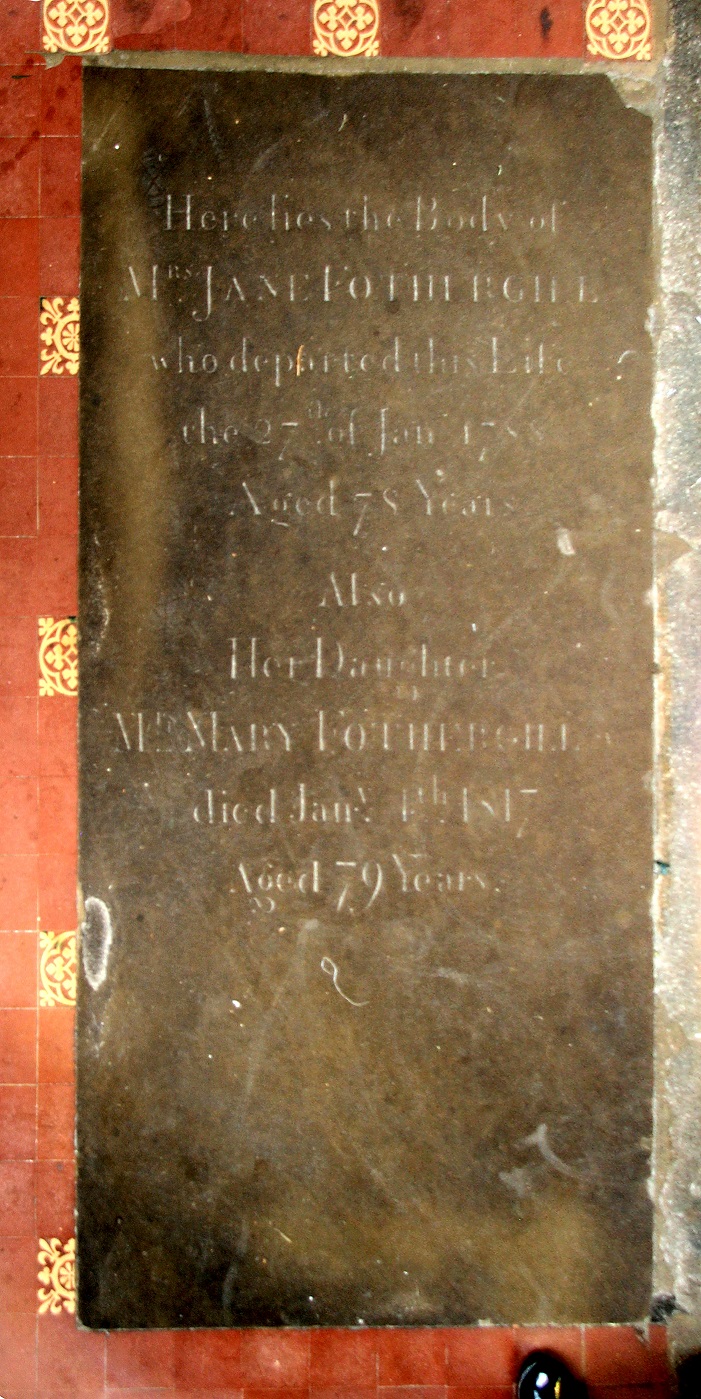 Here lies the Body of
Mrs. JANE FOTHERGILL
who departed this Life
the 27th of Jan 1788
Aged 78 Years
Also
Her Daughter
Mrs. MARY FOTHERGILL
died Jany. 4th. 1817
Aged 79 Years.